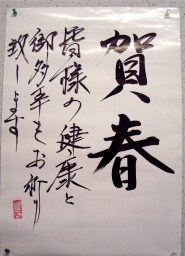 賀春
皆様の健康と
御多幸をお祈り
致します